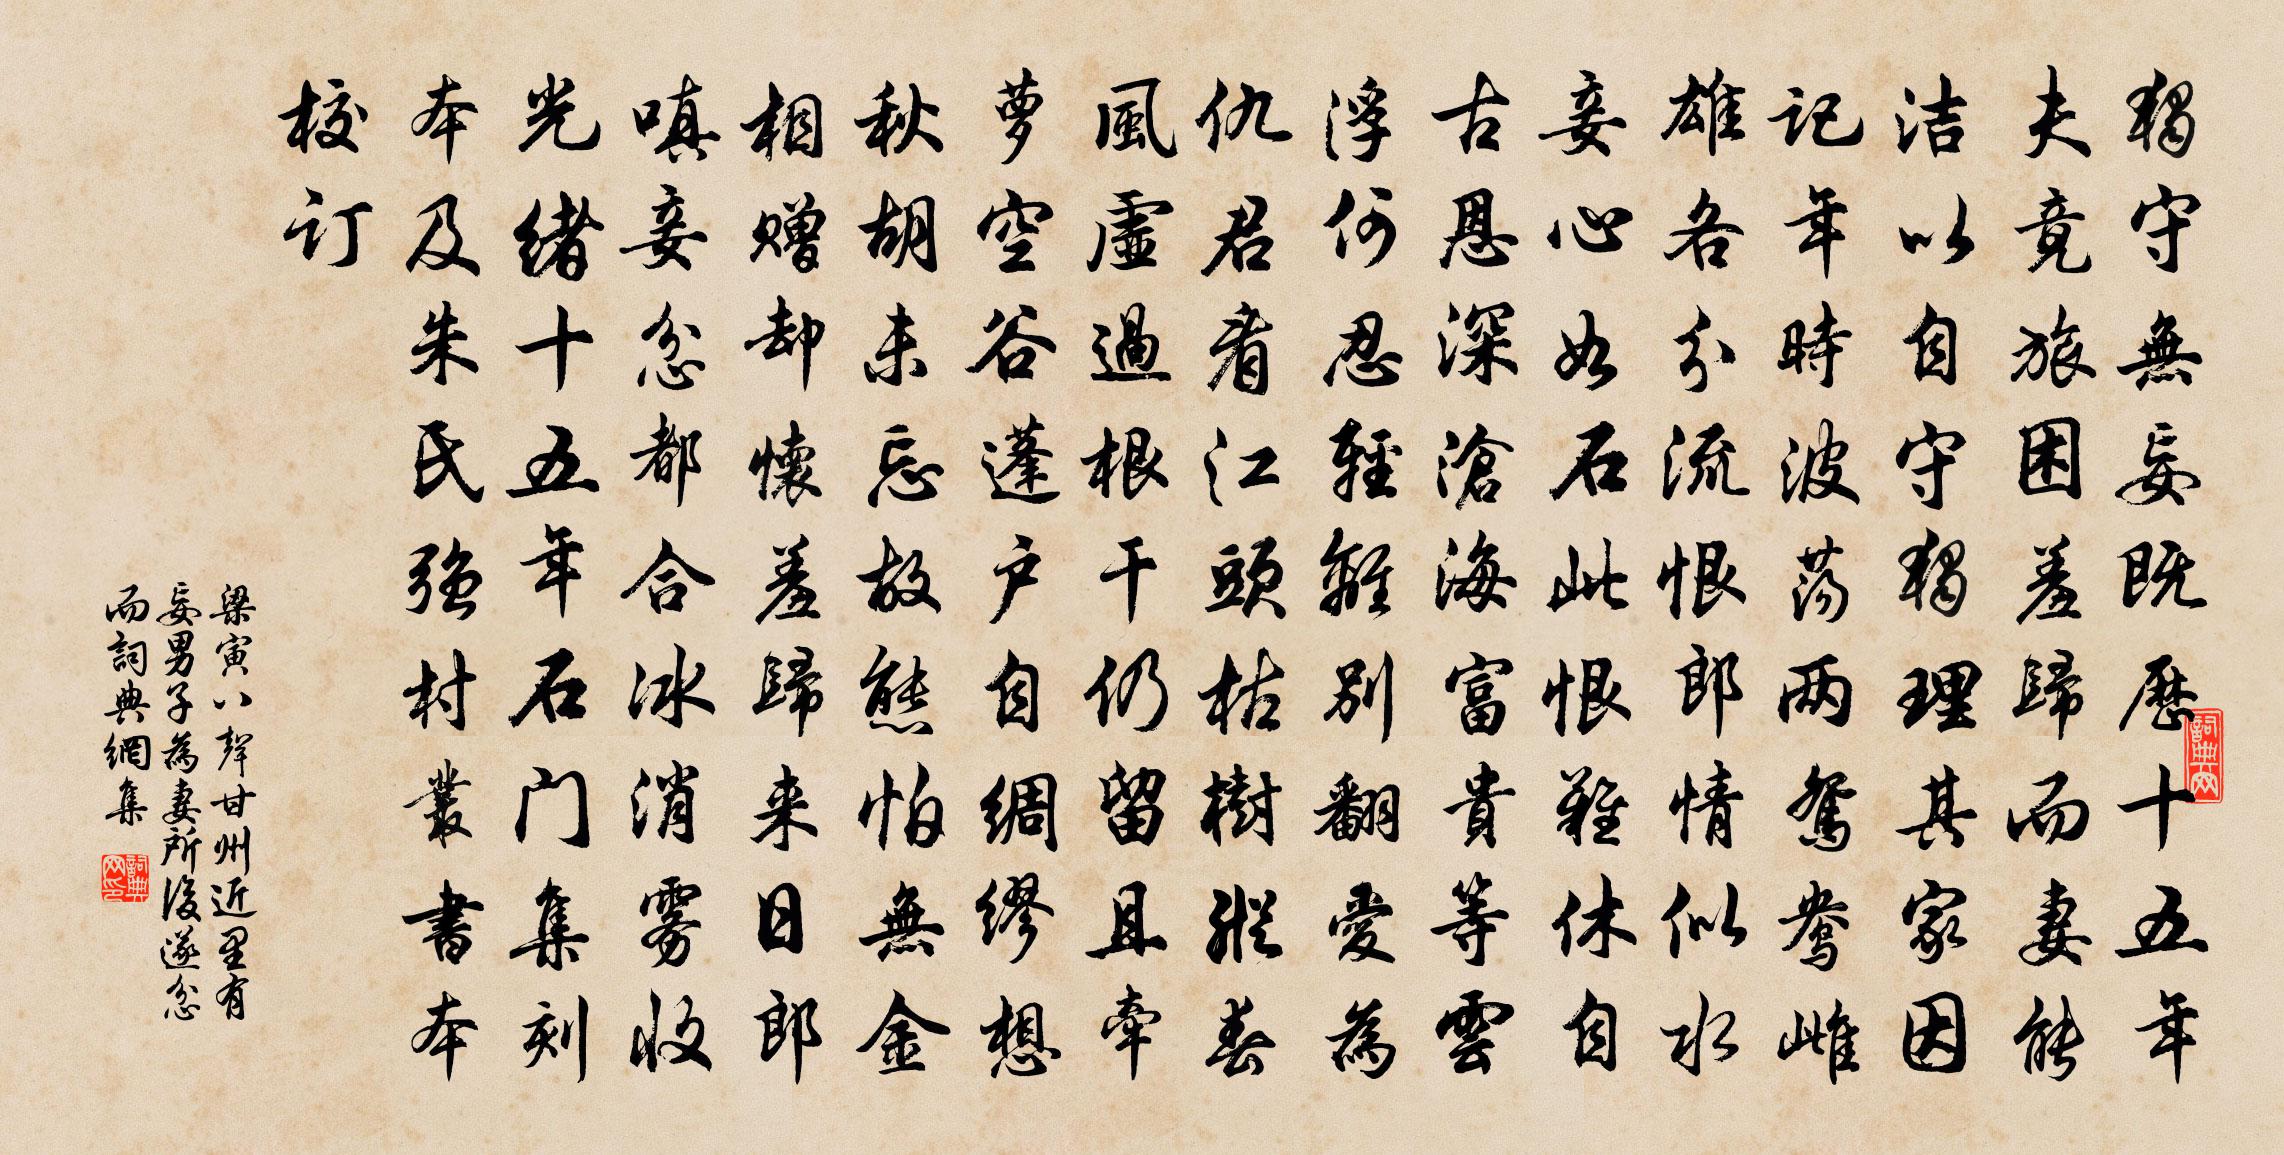 獨守無妄既歷十五年
夫竟旅困羞歸而妻能
洁以自守獨理其家因
記年時波荡兩鴛鴦雌
雄各分流恨郎情似水
妾心如石此恨難休自
古恩深滄海富貴等雲
浮何忍輕離別翻愛為
仇君看江頭枯樹縱春
風虛過根干仍留且牽
萝空谷蓬户自綢繆想
秋胡未忘故態怕無金
相赠却懷羞歸来日郎
嗔妾忿都合冰消雾收
光绪十五年石门集刻
本及朱氏強村叢書本
校订
梁寅八聲甘州近里有
妄男子為妻所没遂忿
而詞典網集
詞典网
詞典网印